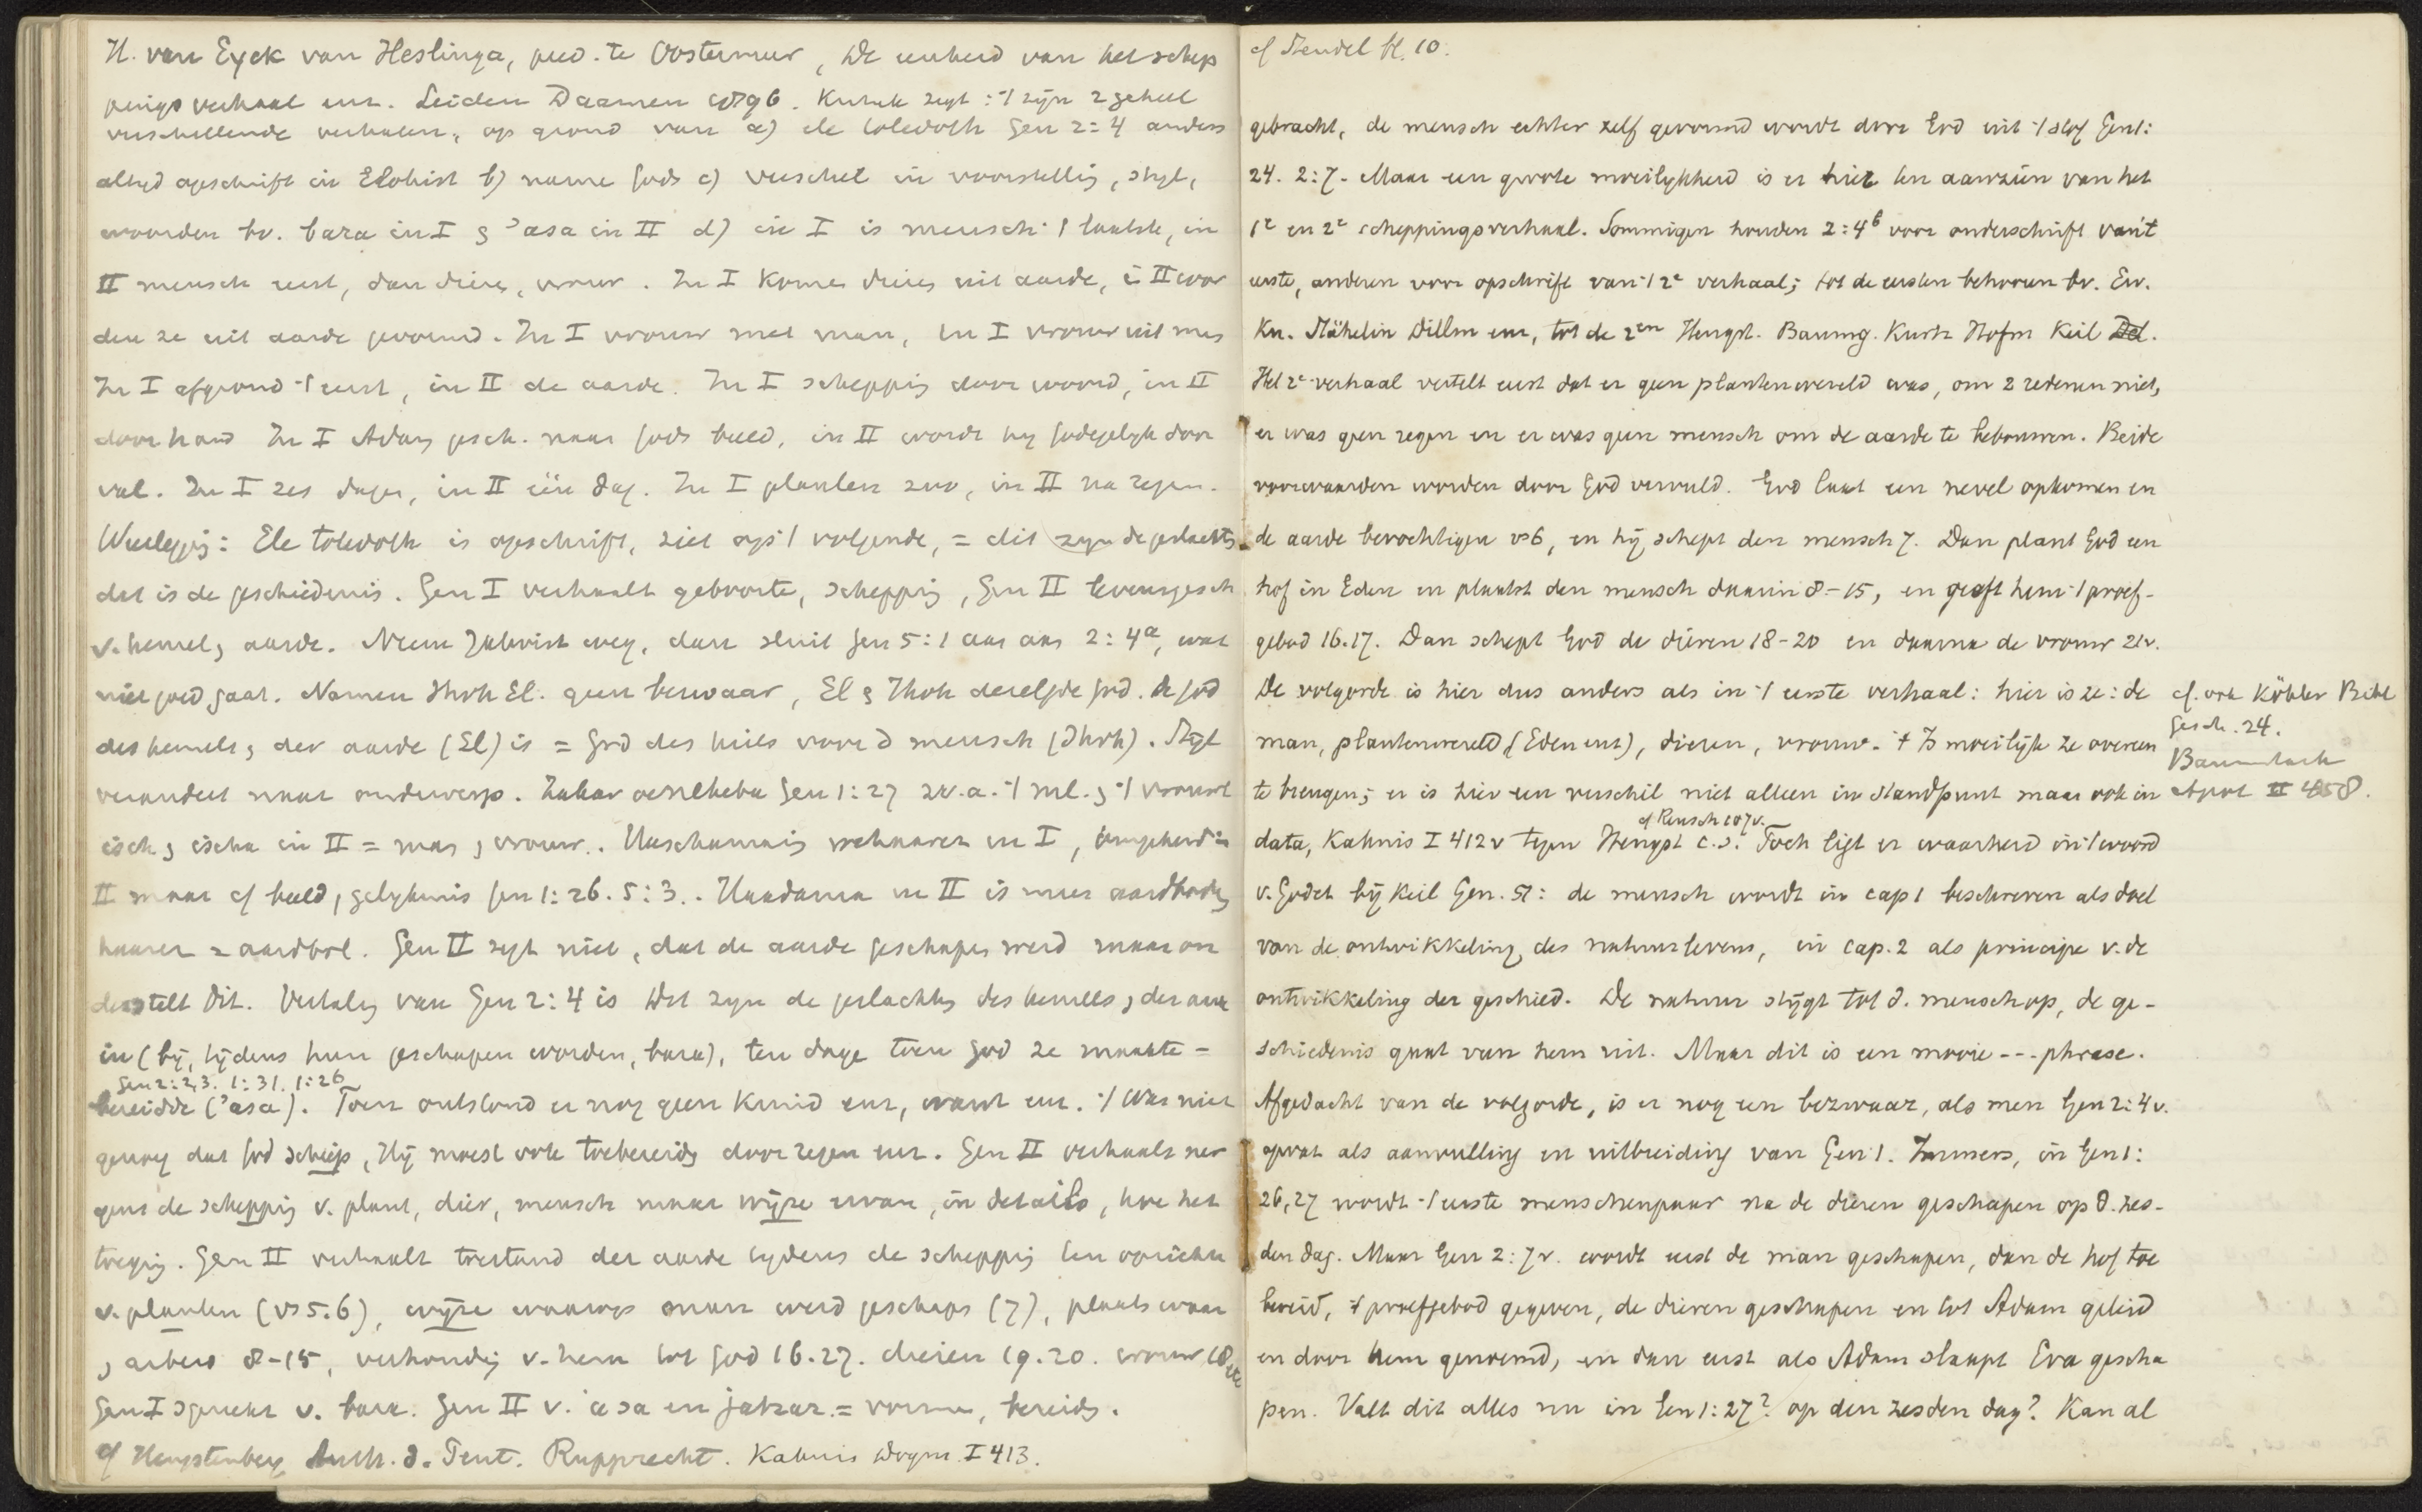 H. van Eyck van Heslinga, pred. te Oostermeer, De eenheid van het schep
pingsverhaal enz. Leiden Daamen 1896. zegt : 't zijn 2 geheel
verschillende verhalen, op grond van a) ele toledoth Gen 2:4 anders
altijd opschrift in Elohist b) name Gods c) verschil in voorstelling, stijl,
woorden bv. bara in I en 'asa in II d) in I is mensch 't laatste, in
II mensch eerst, dan dieren, vrouw. In I komen dieren uit aarde, in II wor
den ze uit aarde gevormd. In I vrouw met man, in I vrouw uit man
In I afgrond 't eerst, in II de aarde. In I schepping door woord, in II
door hand In I Adam gesch. naar Gods beeld, in II wordt hij Godegelijk door
val. In I zes dagen, in II één dag. In I planten zoo, in II na regen.
Weerlegging: Ele toledoth is opschrift, ziet op 't volgende, = dit zijn de geslachten
dat is de geschiedenis. Gen I verhaalt geboorte, schepping, Gen II levensgesch
v. hemel en aarde. Neem Jahvist weg, dan sluit Gen 5:1 aan aan 2:4a, wat
niet goed gaat. Namen Jhvh El. geen bezwaar, El en Jhvh dezelfde God. de God
des hemels en der aarde (El) is = God des heils voor d mensch (Jhvh). Stijl
verandert naar onderwerp. Zakar oenekeba Gen 1:27 = 't ml. en 't vrouwl
isch en ischa in II = man en vrouw. in I, omgekeerd in
II maar cf beeld, gelijkenis Gen 1:26. 5:3. Haadama in II is meer aardbodem
haarez = aardbol. Gen II zegt niet, dat de aarde geschapen werd maar on
derstelt dit. Vertaling van Gen 2:4 is Dit zijn de geslachten des hemels en der aarde
in (bij, tijdens hun geschapen worden, bara), ten dage toen God ze maakte =
Gen 2:2,3. 1:31. 1:26
bereidde ('asa). Toen ontstond er nog geen kruid enz, want enz. 't Was niet
genoeg dat God schiep, Hij moest ook toebereiden door regen enz. Gen II verhaalt ner
gens de schepping v. plant, dier, mensch maar wijze ervan, in details, hoe het
toeging. Gen II verhaalt toestand der aarde tijdens de schepping ten opzichte
v. planten (vs 5.6), wijze waarop man werd geschapen (7), plaats waar
en arbeid 8-15, verhouding v. hem tot God 16.17. dieren 19.20. vrouw 18
Gen I spreekt v. bara. Gen II v. 'asa en jatsar = vormen, bereiden.
cf Hengstenberg Auth. d. Pent. Rupprecht. Kahnis Dogm. I 413.
cf Stendel bl. 10.
gebracht, de mensch echter zelf gevormd wordt door God uit 't stof Gen 1:
24. 2:7. Maar een groote moeilijkheid is er hier ten aanzien van het
1e en 2e scheppingsverhaal. Sommigen houden 2:4b voor onderschrift van 't
eerste, anderen voor opschrift van 't 2e verhaal; tot de eersten behooren bv. Ew.
Kn. Stähelin Dillm enz, tot de 2en Hengst. Baumg. Kurtz Hofm Keil Del.
Het 2e verhaal vertelt eerst dat er geen plantenwereld was, om 2 redenen niet,
er was geen regen en er was geen mensch om de aarde te bebouwen. Beide
voorwaarden worden door God vervuld. God laat een nevel opkomen en
de aarde bevochtigen vs 6, en hij schept den mensch 7. Dan plant God een
hof in Eden en plaatst den mensch daarin 8-15, en geeft hem 't proef-
gebod 16.17. Dan schept God de dieren 18-20 en daarna de vrouw 21v.
De volgorde is hier dus anders als in 't eerste verhaal: hier is ze: de
man, plantenwereld (Eden enz), dieren, vrouw. 't Is moeilijk ze overeen
te brengen; er is hier een verschil niet alleen in standpunt maar ook in
cf Reusch 107v.
data, Kahnis I 412v tegen Hengst c.s. Toch ligt er waarheid in 't woord
v. Godet bij Keil Gen. 51: de mensch wordt in cap 1 beschreven als doel
van de ontwikkeling des natuurlevens, in cap. 2 als principe v. de
ontwikkeling der geschied. De natuur stijgt tot d. mensch op, de ge-
schiedenis gaat van hem uit. Maar dit is een mooie --- phrase.
Afgedacht van de volgorde, is er nog een bezwaar, als men Gen 2:4v.
opvat als aanvulling en uitbreiding van Gen 1. Immers, in Gen 1:
26,27 wordt 't eerste menschenpaar na de dieren geschapen op d. zes-
den dag. Maar Gen 2:7v. wordt eerst de man geschapen, dan de hof toe
bereid, 't proefgebod gegeven, de dieren geschapen en tot Adam geleid
en door hem genoemd, en dan eerst als Adam slaapt Eva gescha
pen. Valt dit alles nu in Gen 1:27? op den zesden dag? Kan al
cf. ook Köhler Bibl
Gesch. 24.
Apol II 458.